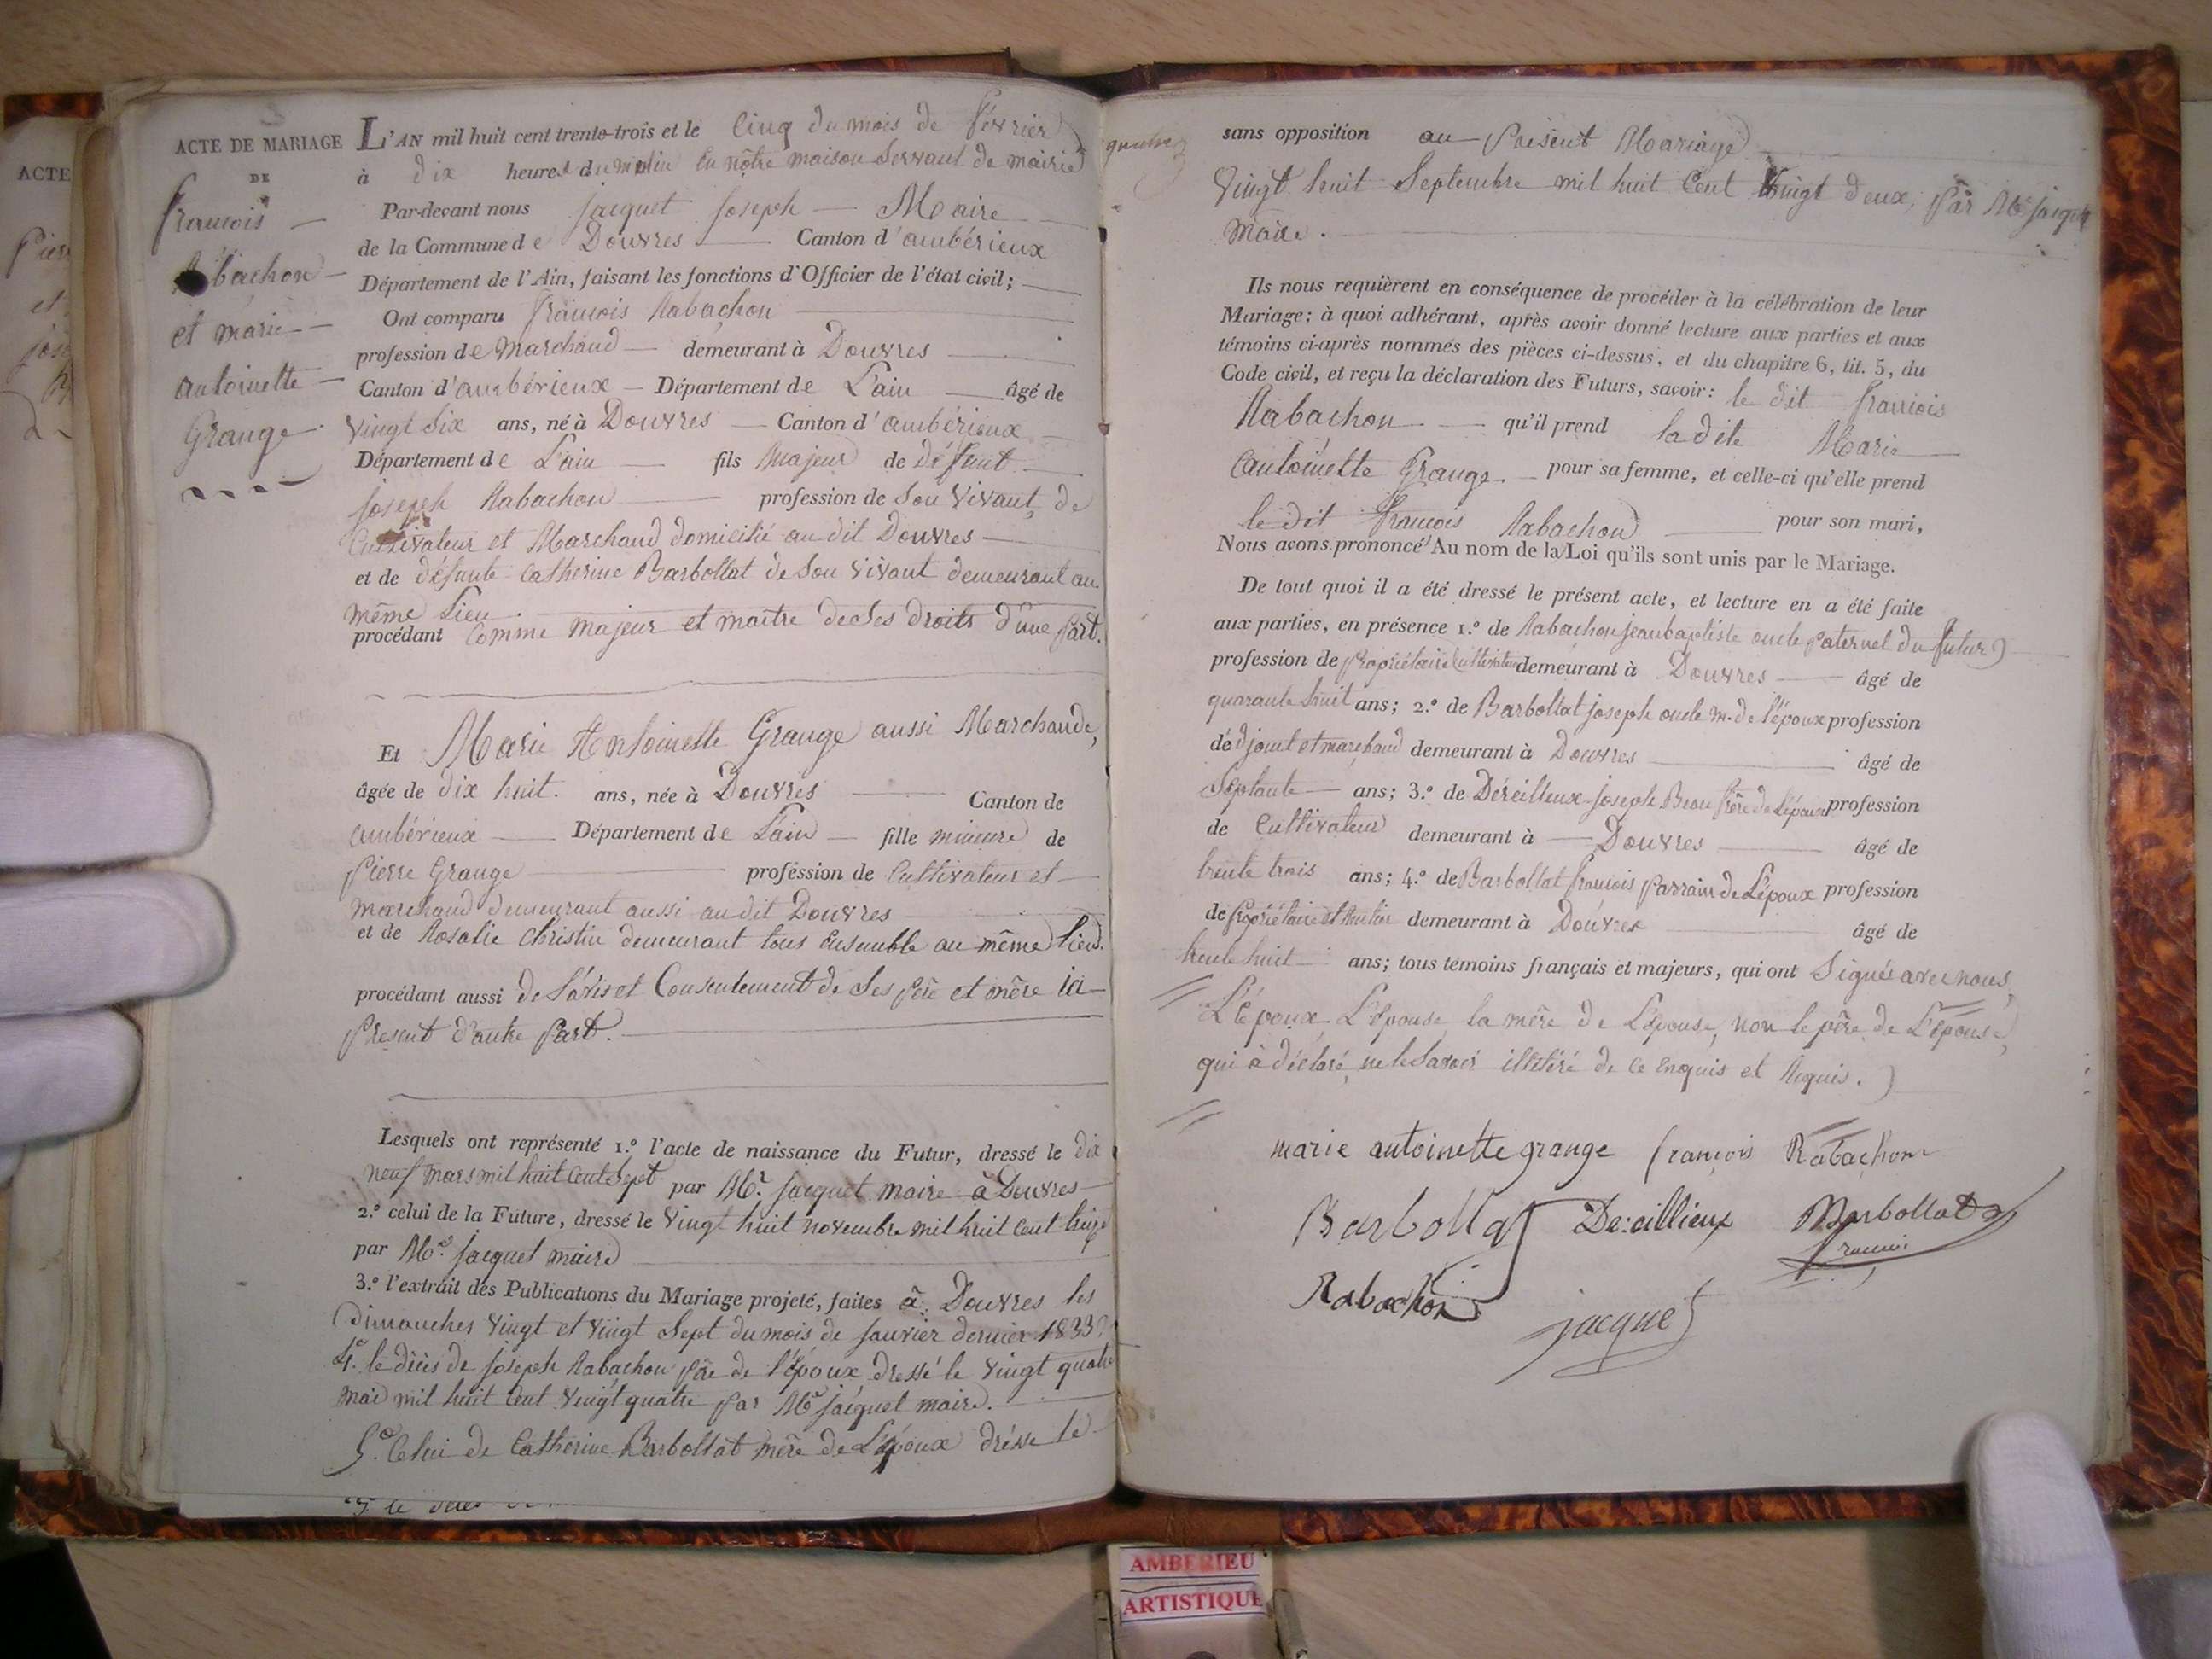 ACTE
ACTE DE MARIAGE
DE
francois
Rabachon
et marie
antoinette
Grange
L'AN mil huit cent trente-trois et le Cinq du mois de février
à dix heures du matin En nôtre maison Servant de mairie
Par-devant nous jacquet joseph Maire
de la Commune de Douvres Canton d'ambérieux
Département de l'Ain, faisant les fonctions d'Officier de l'état civil;
Ont comparu françois Rabachon
profession de Marchand demeurant à Douvres
Canton d'ambérieux Département de L'ain âgé de
Vingt Six ans, né à Douvres Canton d'ambérieux
Département de L'ain fils Majeur de défunt
joseph Rabachon profession de Son Vivant, de
Cultivateur et Marchand domicilié au dit Douvres
et de défunte Catherine Barbollat de Son Vivant demeurant au
même Lieu.
procédant Comme Majeur et maître de Ses droits d'une part.
Et Marie Antoinette Grange aussi Marchande,
âgée de dix huit. ans, née à Douvres Canton de
ambérieux Département de L'ain fille mineure de
Pierre Grange profession de Cultivateur et
marchand demeurant aussi au dit Douvres
et de Rosalie Christin demeurant tous Ensemble au même lieu.
procédant aussi de L'avis et Consentement de Ses père et mère ici
présent d'autre part.
Lesquels ont représenté 1.º l'acte de naissance du Futur, dressé le dix
neuf mars mil huit Cent Sept par Mr. jacquet maire à Douvres
2.º celui de la Future, dressé le Vingt huit novembre mil huit Cent
par Mr. jacquet maire
3.º l'extrait des Publications du Mariage projeté, faites à Douvres les
Dimanches Vingt et Vingt Sept du mois de janvier dernier 1833
4.º le décès de joseph Rabachon père de l'Epoux dressé le Vingt quatre
mai mil huit Cent Vingt quatre par Mr jacquet maire.
5.º Celui de Catherine Barbollat mère de L'époux dréssé le
quatre
sans opposition au présent Mariage
Vingt huit Septembre mil huit Cent Vingt deux, par Mr jacquet
Maire.
Ils nous requièrent en conséquence de procéder à la célébration de leur
Mariage; à quoi adhérant, après avoir donné lecture aux parties et aux
témoins ci-après nommés des pièces ci-dessus, et du chapitre 6, tit. 5, du
Code civil, et reçu la déclaration des Futurs, savoir: le dit francois
Rabachon qu'il prend la dite Marie
antoinette Grange pour sa femme, et celle-ci qu'elle prend
le dit francois Rabachon pour son mari,
Nous avons prononcé Au nom de la Loi qu'ils sont unis par le Mariage.
De tout quoi il a été dressé le présent acte, et lecture en a été faite
aux parties, en présence 1.º de Rabachon jean baptiste oncle paternel du futur
profession de propriétaire Cultivateur demeurant à Douvres âgé de
quarante huit ans; 2.º de Barbollat joseph oncle m. de l'époux profession
d'adjoint et marchand demeurant à Douvres âgé de
Septante ans; 3.º de Déreilleux joseph Beau frère de L'époux profession
de Cultivateur demeurant à Douvres âgé de
trente trois ans; 4.º de Barbollat francois parrain de L'époux profession
de propriétaire et demeurant à Douvres âgé de
trente huit ans; tous témoins français et majeurs, qui ont Signés avec nous,
L'époux, L'épouse, la mère de L'épouse, non le père de L'épouse,
qui à déclaré, ne le Savoir illitéré de ce Enquis et Requis.
marie antoinette grange francois Rabachon
Barbollat Dereillieux Barbollat
francois
Rabachon
jacquet
AMBERIEU
ARTISTIQUE